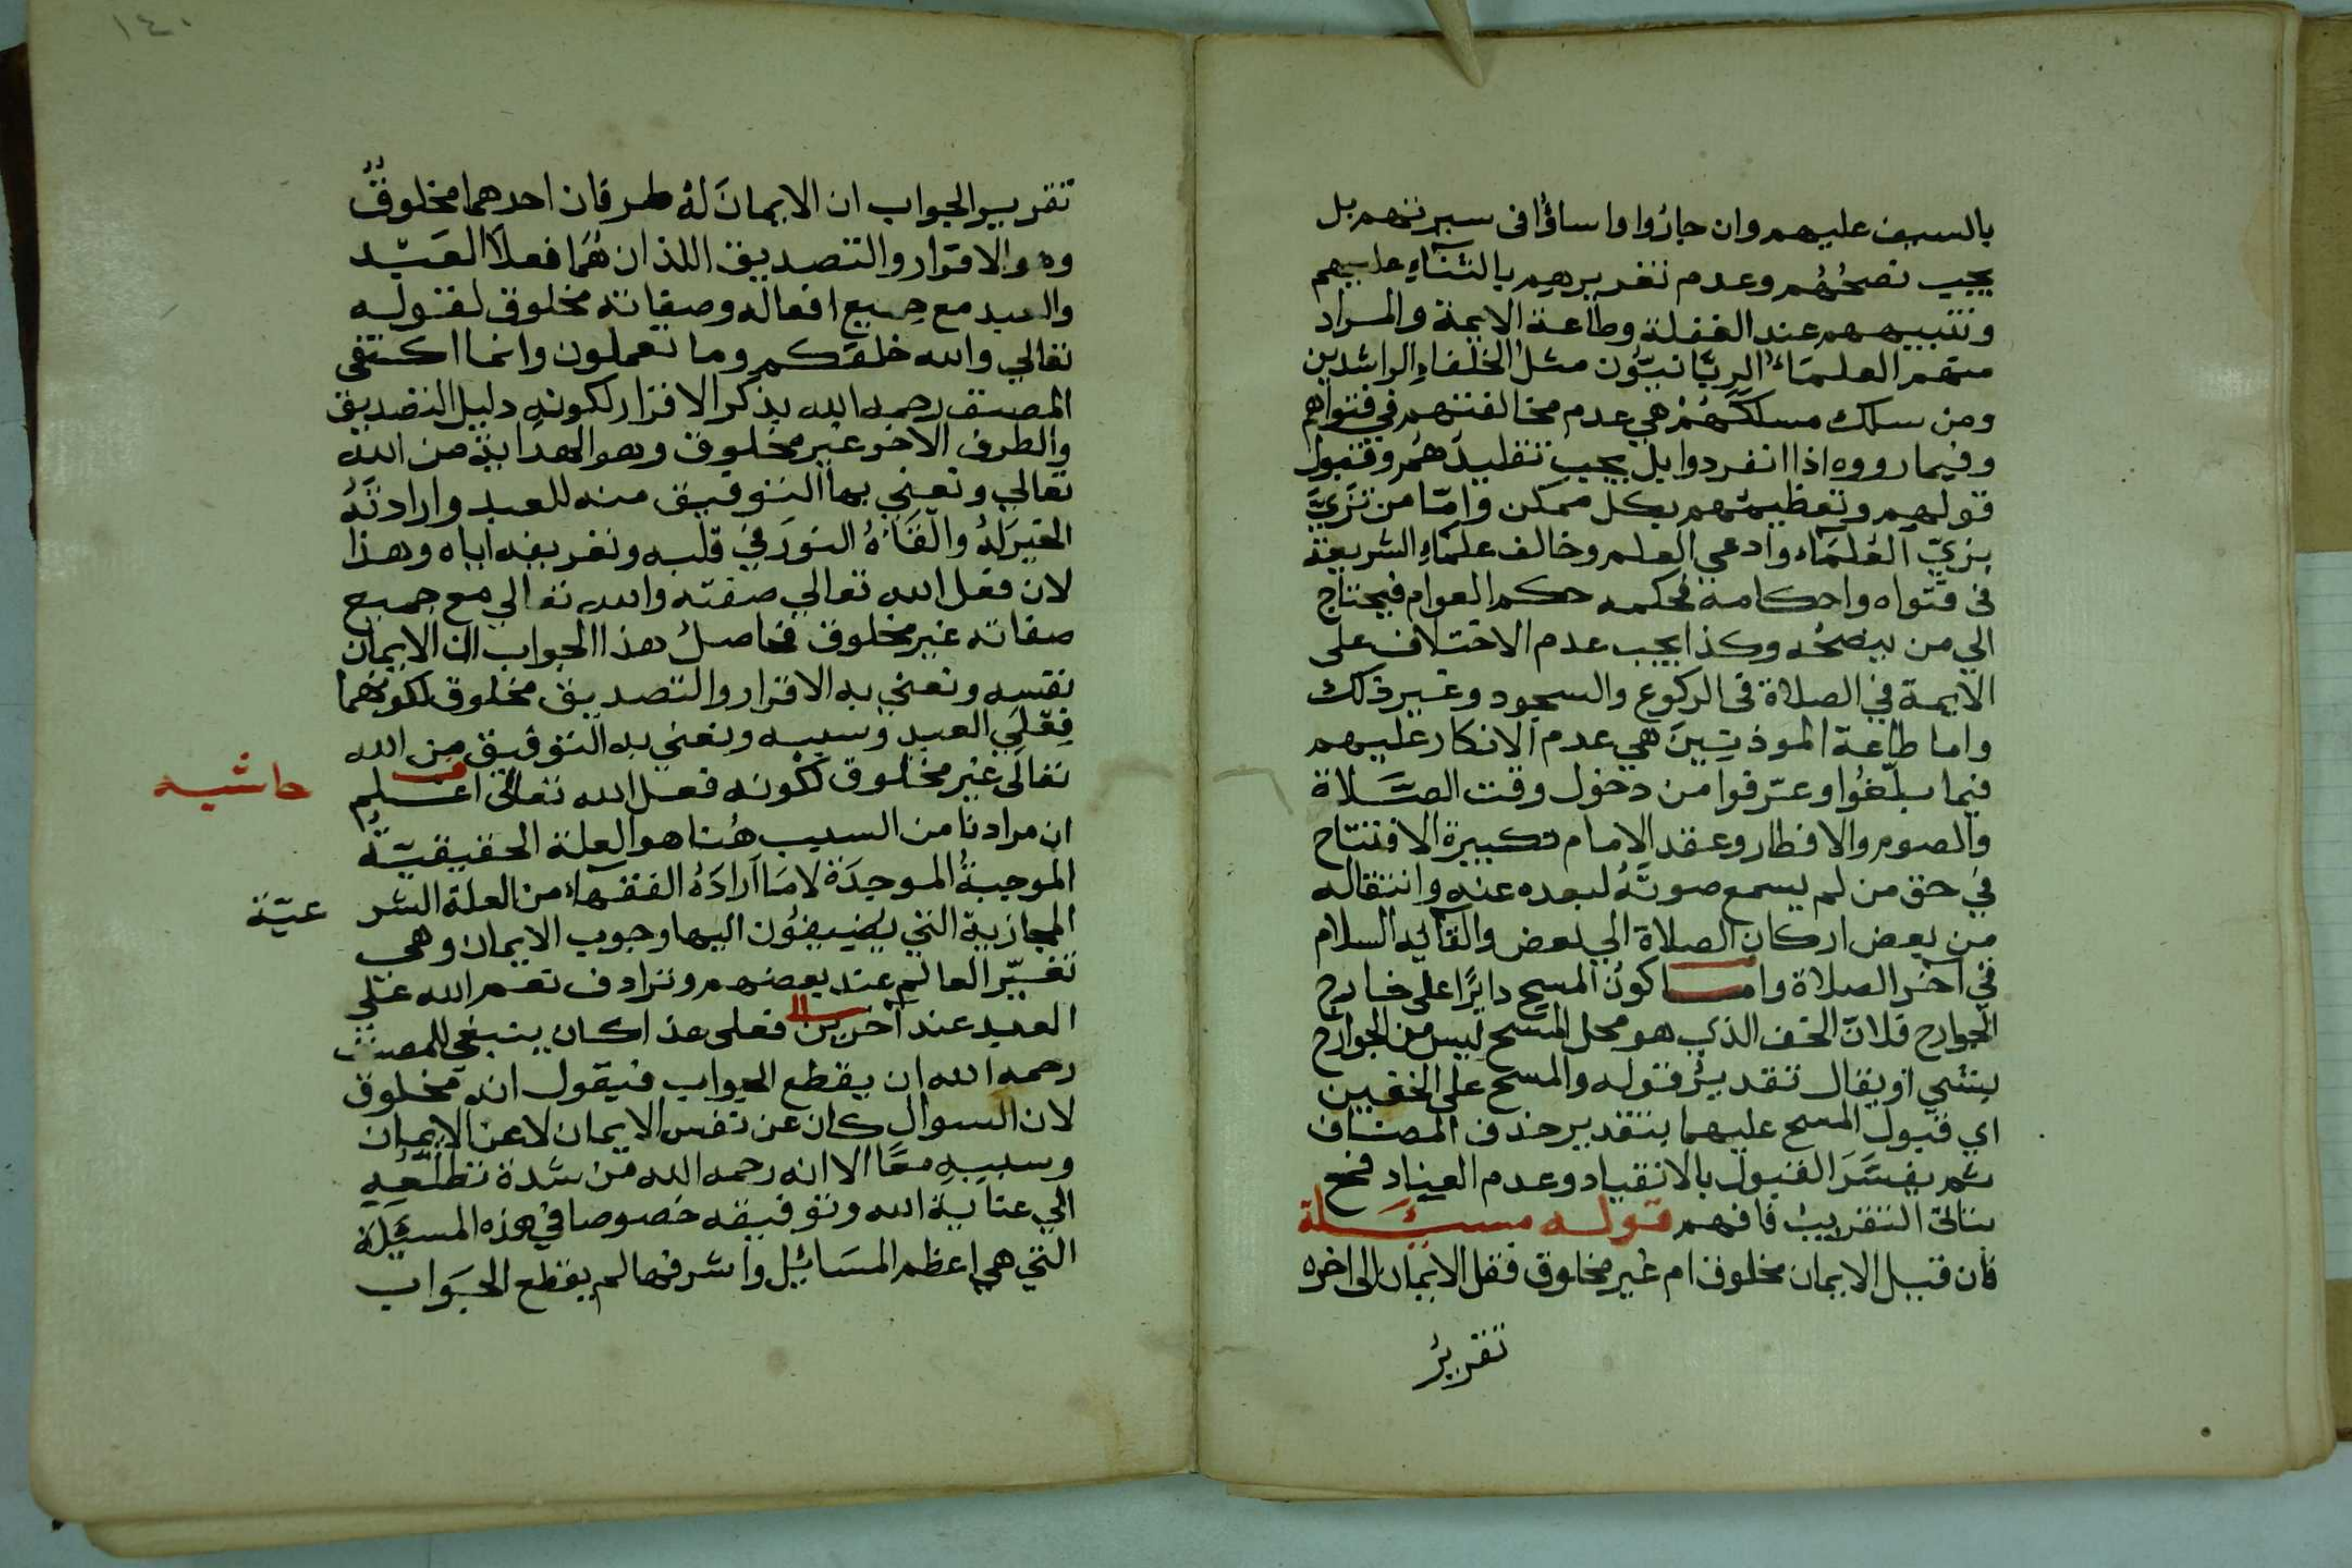 بالسيف عليهم وان جاروا واساؤا في سيرتهم بل
يجب نصحُهُم وعدم تغريرهم بالثنآءِ عليهم
وتنبيههم عند الغفلة وطاعة الايمة والمراد
منهم العلمَاءُ الربّانيّون مثلُ الخلفاءِ الراشدين
ومن سلك مسلكَهُمْ هي عدم مخالفتهم في فتواهم
وفيما رووه اذا انفردوا بل يجب تقليدهُم وقبول
قولهم وتعظيمهم بكل ممكن وامّا من تَزَيَّ
بزيّ العُلمَآء وادعي العلم وخالف علمَآءِ الشريعة
في فتواه واحكامه فحكمه حكم العوام فيحتاج
الي من ينصحُه وكذا يجب عدم الاختلاف على
الايمة في الصلاة في الركوع والسجود وغير ذلك
واما طاعة الموذنِينَ هي عدم الانكار عليهم
فيما بلّغُوا وعرّفوا من دخول وقت الصَّلاة
والصوم والافطار وعقد الامام تكبيرة الافتتاح
في حق من لم يسمع صوتَهُ لبعده عنه وانتقاله
من بعض اركان الصلاة الي بعض والقآيه السلام
في آخر الصلاة واما كونُ المسح دايرًا على خارج
الجوارح فلان الخف الذي هو محل المسح ليس من الجوارح
بشيٍ او يقال تقديرُ قوله والمسح على الخفين
اي قبول المسح عليهما بتقدير حذف المضاف
ثم يفسَّرَ القبول بالانقياد وعدم العناد فح
يتاتى التقريبُ فافهم قوله مسئلة
فان قيل الايمان مخلوق ام غير مخلوق فقل الايمان الى اخره
تقريرُ
١٤٠
تقرير الجواب ان الايمانَ لهُ طرفان احدهما مخلوقٌ
وهو الاقرار والتصديق اللذان هُمَا فعلا العَبْد
والعبد مع جميع افعاله وصفاته مخلوق لقوله
تعالي والله خلقكم وما تعملون وانما اكتفى
المصنف رحمه الله بذكر الاقرار لكونهِ دليل التصديق
والطرف الاخر غير مخلوق وهو الهداية من الله
تعالي ونعني بها التوفيق منه للعبد وارادتَهُ
الخيرَ لهُ والقَاءُهُ النورَ في قلبه وتعريفه اياه وهذا
لان فعل الله تعالي صفته والله تعالي مع جميع
صفاته غير مخلوق فحاصلُ هذا الجواب ان الايمان
نفسه ونعني به الاقرار والتصديق مخلوق لكونهما
فِعْلَيِ العبد وسببه ونعني به التوفيق من الله
تعالى غير مخلوق لكونه فعل الله تعالى اعلم
حاشيه
ان مرادنا من السبب هُنا هو العلة الحقيقيَّةُ
الموجبةُ الموجِدَة لا مَا اَرادَهُ الفقهآء من العلة الشر
عيّة
المجازية التي يُضيفُون اليها وجوب الايمان وهي
تغيّر العالم عند بعضهم وترادف نعم الله على
العبد عند آخرين فعلى هذا كان ينبغي للمصنف
رحمه الله ان يقطع الجواب فيقول انه مخلوق
لان السوال كان عن نفس الايمان لا عن الايمان
وسببهِ معًا الا انه رحمه الله من شدة تطلّعِهِ
الي عناية الله وتوفيقه خصوصا في هذه المسئلة
التي هي اعظم المسَائِل واشرفها لم يقطع الجَوَاب